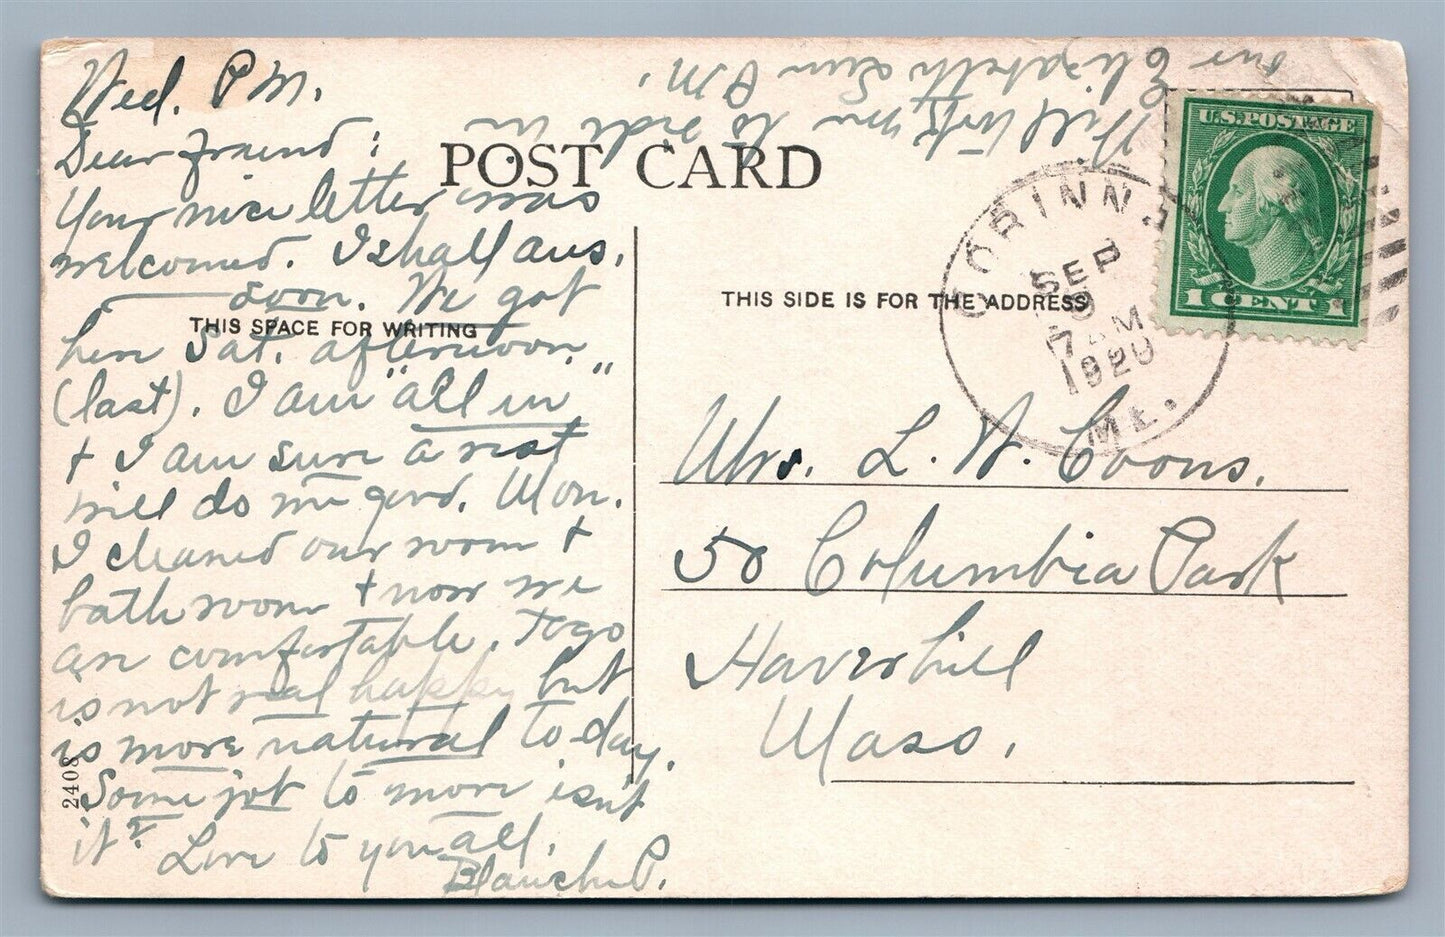 Wed. P.M.
Dear friend:
Your nice letter was
welcomed. I shall ans.
soon. We got
here Sat. afternoon
(last). I am "all in"
+ I am sure a rest
will do me good. Mon.
I cleaned our room +
bath room + now we
are comfortable. Togo
is not real happy but
is more natural to-day.
Some job to move isn't
it? Love to you all.
Blanche P.
Will write you to ride in
our Elizabeth Sun P.M.
POST CARD
THIS SPACE FOR WRITING
THIS SIDE IS FOR THE ADDRESS
2408
U.S. POSTAGE
1 CENT 1
CORINNA
SEP
9
7 AM
1920
ME.
Mrs. L. W. Coons.
50 Columbia Park
Haverhill
Mass.